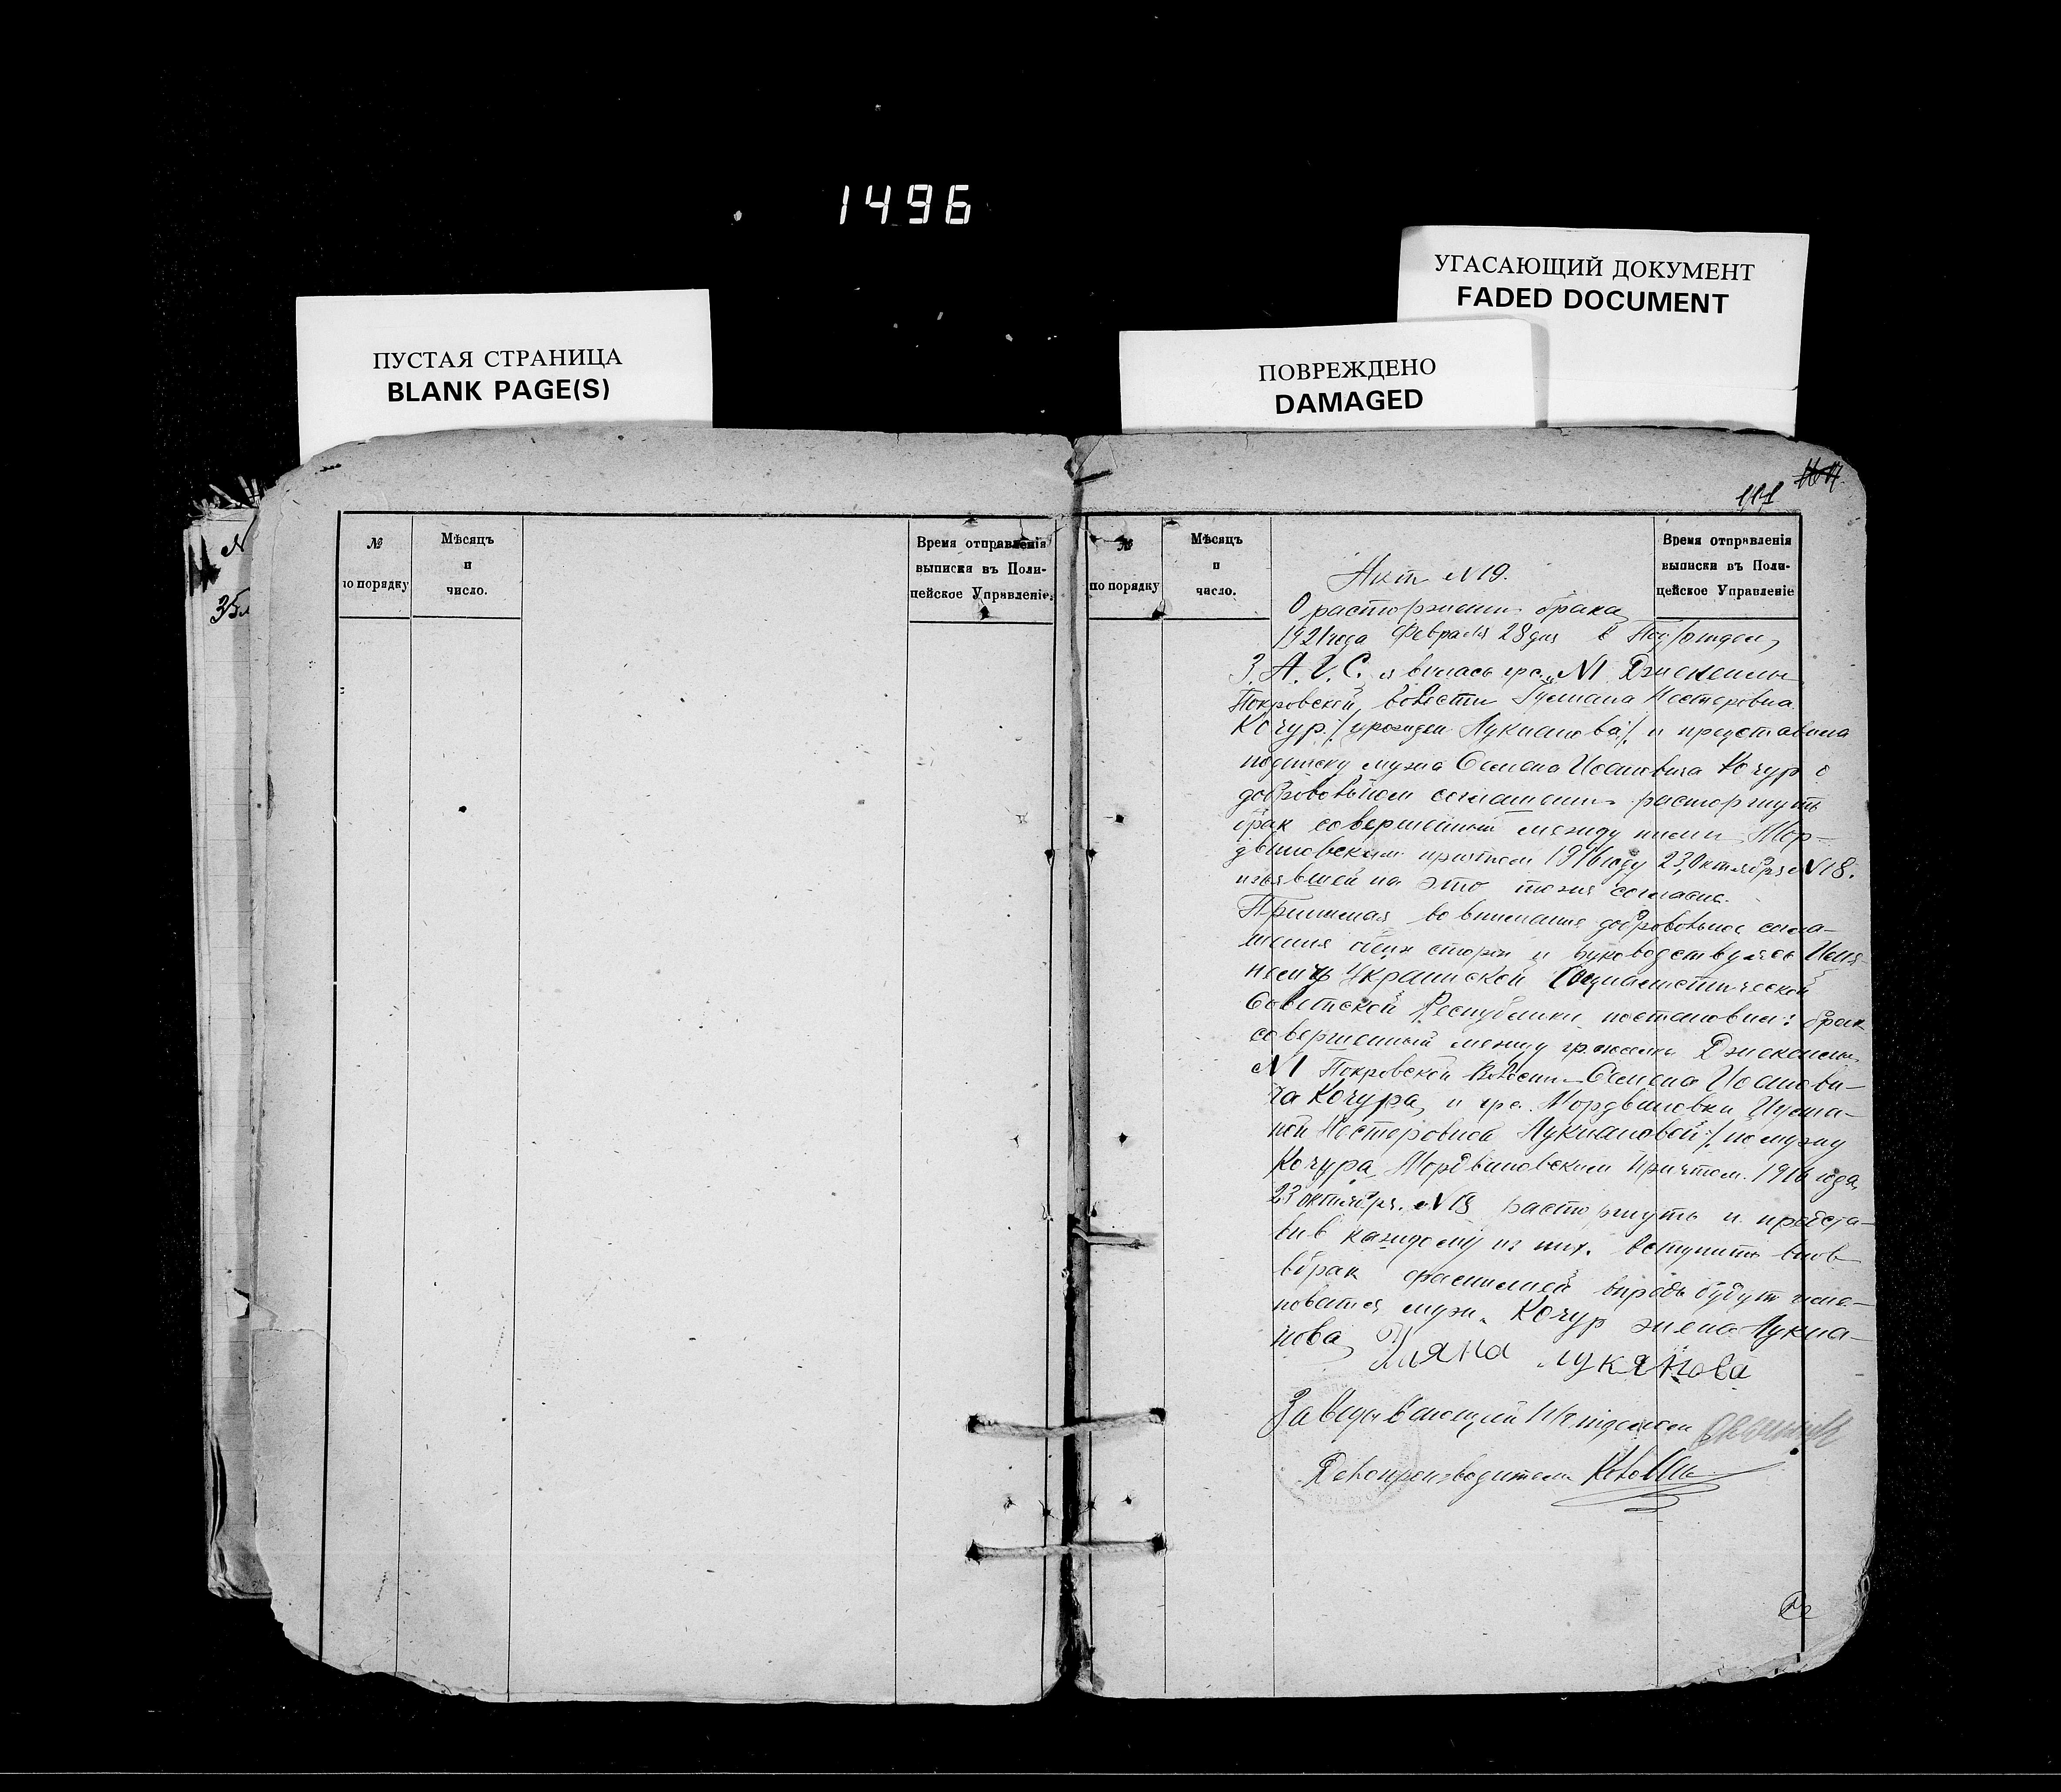 1496
УГАСАЮЩИЙ ДОКУМЕНТ
FADED DOCUMENT
ПУСТАЯ СТРАНИЦА
BLANK PAGE(S)
ПОВРЕЖДЕНО
DAMAGED
№
по порядку
Мѣсяцъ
и
число.
Время отправленія
выписки въ Поли-
цейское Управленіе.
№
по порядку
Мѣсяцъ
и
число.
Время отправленія
выписки въ Поли-
цейское Управленіе
Акт №19.
О расторжении брака
1921 года Февраля 28 дня в Подотдел
З.А.Г.С. явилась гр. №1
Покровской волости Нестеровна
Кочур /: урожден Лукианова :/ и представила
подписку мужа Семена Иоановича Кочур о
добровольном соглашении расторгнуть
брак совершенный между ними Мор-
двиновским причтом 1916 году 23 октября №18.
на это тоже согласие.
Принимая во внимание доброволь­ное согла-
шение обеих сторон и руководствуясь
Украинской Социалистической
Советской Республики постановил: брак
совершенный между
№1 Покровской Волости Семена Иоанови-
ча Кочура, и гр. Мордвиновки
Нестеровной Лукиановой /: по мужу
Кочура Мордвиновским Причтом 1916 года
23 октября №18 расторгнуть и предста-
вив каждому из них вступить внов
вбрак фамилией впредь будут име-
новатся муж Кочур жена Лукиа-
нова
Лукянова
Заведывающий П/отделом
Делопроизводитель